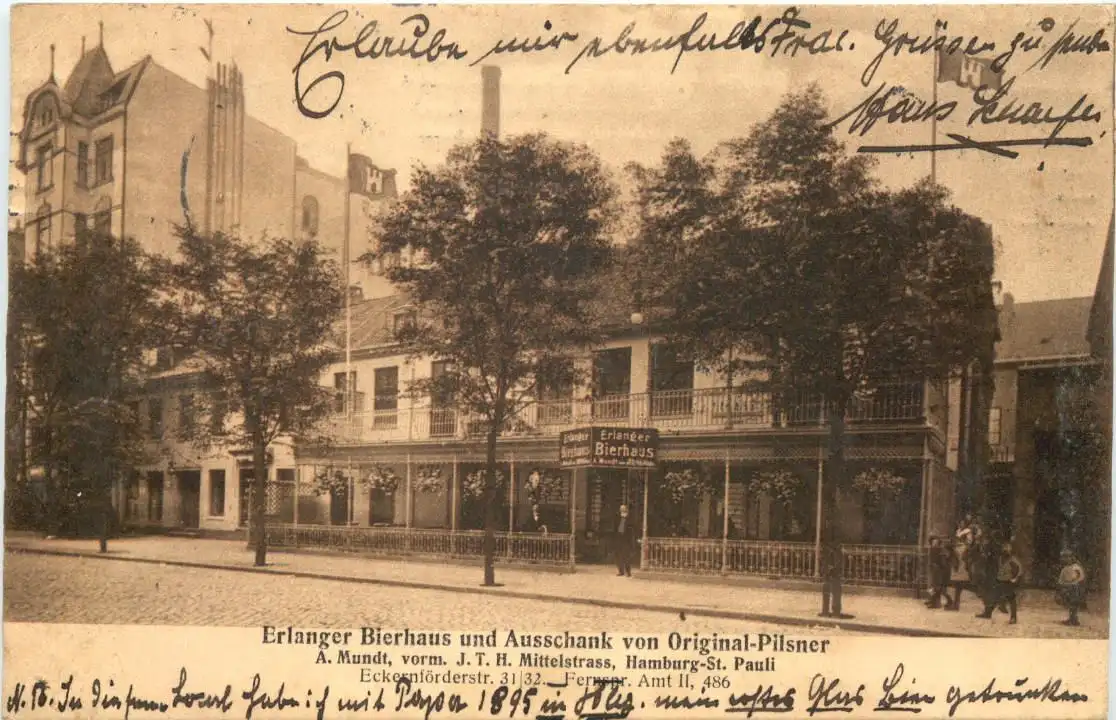 Erlaube mir ebenfalls Frdl. Grüssen zu senden
Hans Schaefer
H
H
Erlanger
Bierhaus
Erlanger
Bierhaus
A. Mundt
Erlanger Bierhaus und Ausschank von Original-Pilsner
A. Mundt, vorm. J. T. H. Mittelstrass, Hamburg-St. Pauli
Eckernförderstr. 31/32. Fernspr. Amt II, 486
N.B. In diesem Local habe ich mit Papa 1895 in Hbg. mein erstes Glas Bier getrunken